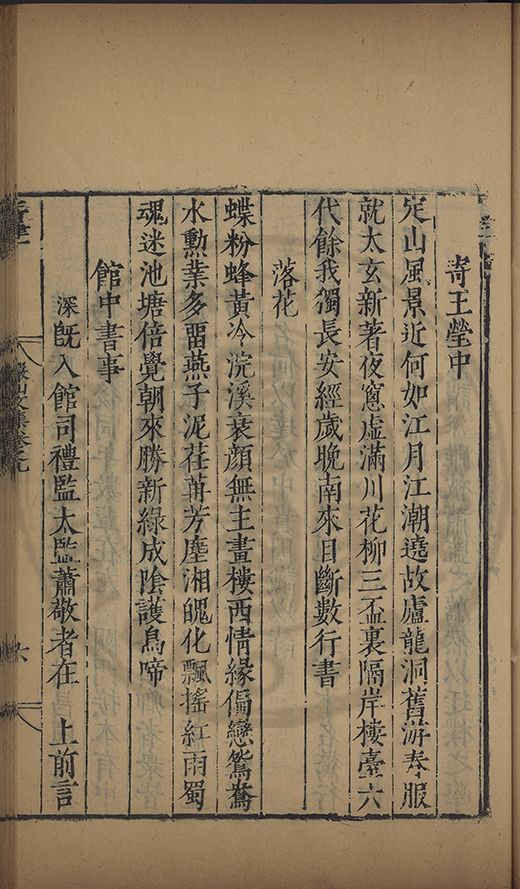 寄王瑩中
定山風景近何如江月江潮遶故廬龍洞舊游奉服
就太玄新著夜窻虛滿川花柳三盃裏隔岸樓臺六
代餘我獨長安經歲晚南來目斷數行書
落花
蝶粉蜂黃冷浣溪衰顏無主畫樓西情緣偏戀鴛鴦
水勲葉多留燕子泥荏苒芳塵湘魄化飄搖紅雨蜀
魂迷池塘倍覺朝來勝新綠成陰護鳥啼
館中書事
深既入館司禮監太監蕭敬者在 上前言
六